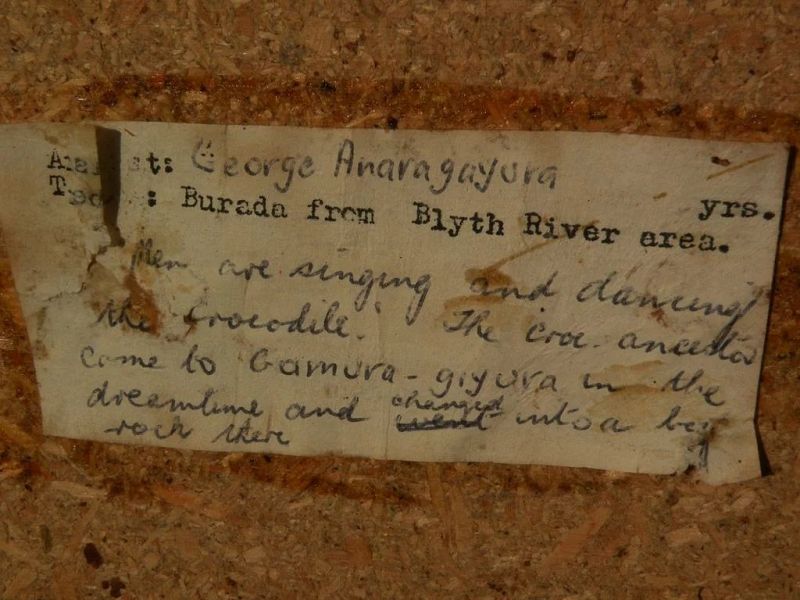 George Anaragayura yrs.
: Burada from Blyth River area.
Men are singing and dancing
the Crocodile. The croc. ancestor
came to Gamura-giyura in the
dreamtime and changed into a big
rock there